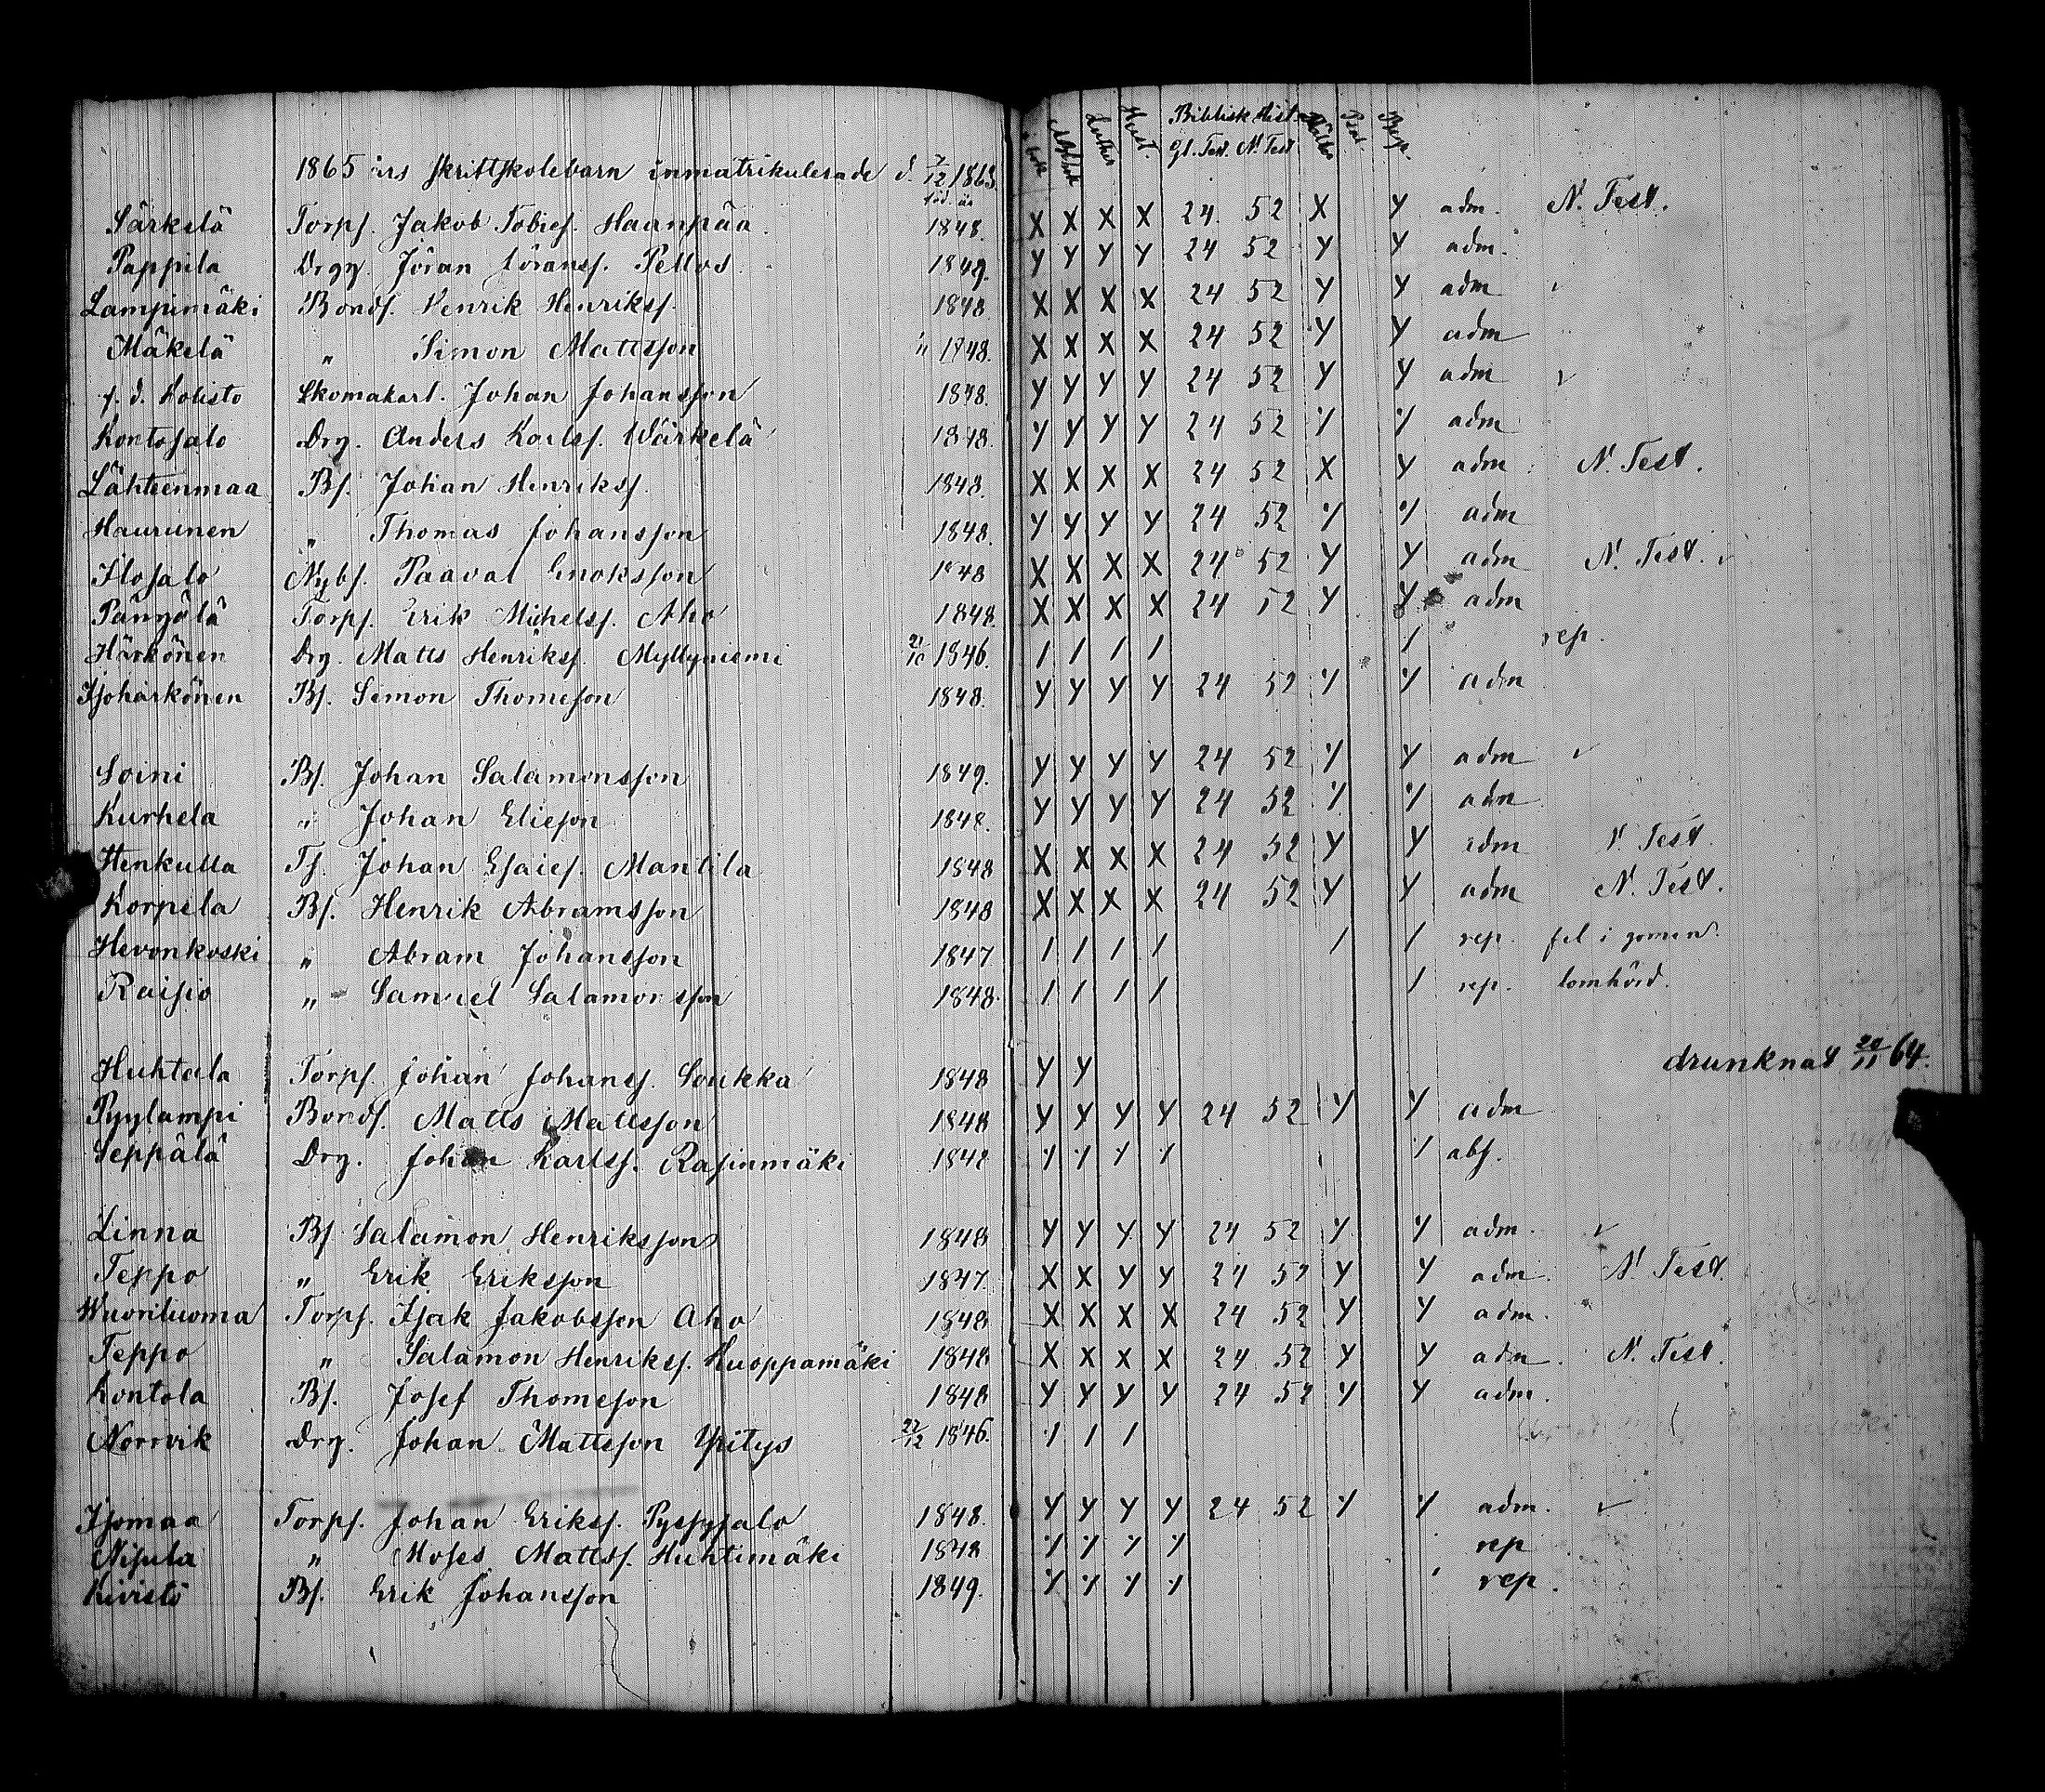 Biblisk Hist.
Luther Hust. Gl. Test. N. Test
1865 års skriftskolebarn inmatrikulerade d. 7/12 1863.
föd. år
Särkelä Torps. Jakob Tobies. Haanpää. 1848. X X X X 24. 52 X Y adm. N. Test.
Pappila Drgg. Jöran Göranss. Pellos 1849. Y Y Y Y 24 52 Y Y adm.
Lampimäki Bonds. Henrik Henrikss. 1848 X X X X 24 52 Y Y adm
Mäkelä " Simon Mattsson " 1848. X X X X 24 52 Y Y adm
f. d. Koristo Skomakarl. Johan Johansson 1848. Y Y Y Y 24 52 Y Y adm ✓
Kontosalo Drg. Anders Karlss. Wärkelä 1848. Y Y Y Y 24 52 Y Y adm
Lähteenmaa Bs. Johan Henrikss. 1848. X X X X 24 52 X Y adm N. Test.
Haurunen " Thomas Johansson 1848. Y Y Y Y 24 52 Y Y adm
Ilosalo Nybs. Paaval Enoksson 1848 X X X X 24 52 Y Y adm N. Test. ✓
Torps. Erik Michelss. Aho 1848. X X X X 24 52 Y Y adm
Härkönen Drg. Matts Henrikss. Myllyniemi 21/10 1846. / / / / / rep.
Isohärkönen Bs. Simon Thomeson 1848. Y Y Y Y 24 52 Y Y adm
Soini Bs. Johan Salamonsson 1849. Y Y Y Y 24 52 Y Y adm ✓
Kurhela " Johan Elieson 1848. Y Y Y Y 24 52 Y Y adm
Henkulla Ts. Johan Esaies. Mantila 1848 X X X X 24 52 Y Y adm N. Test.
Korpela Bs. Henrik Abramsson 1848 X X X X 24 52 Y Y adm N. Test.
Hevonkoski " Abram Johansson 1847 / / / / / / rep. fel i gomen.
Raisio " Samuel Salamonsson 1848. / / / / / rep. lomhörd.
Huhtala Torps. Johan Johanss. Soukka 1848 Y Y drunknat 20/11 64.
Pyylampi Bonds. Matts Mattsson 1848 Y Y Y Y 24 52 Y Y adm
Seppälä Drg. Johan Karlss. Rasinmäki 1848 Y Y Y Y Y abs.
Linna Bs Salamon Henriksson 1848 Y Y Y Y 24 52 Y Y adm. ✓
Teppo " Erik Eriksson 1847. X X Y Y 24 52 Y Y adm. N. Test.
Wuoriluoma Torps. Isak Jakobsson Aho 1848 X X X X 24 52 Y Y adm.
Teppo " Salamon Henrikss. Kuoppamäki 1848 X X X X 24 52 Y Y adm. N. Test.
Kontola Bs. Josef Thomeson 1848 Y Y Y Y 24 52 Y Y adm.
Norrvik Drg. Johan Mattsson Ypitys 22/12 1846. / / /
Isomaa Torps. Johan Erikss. Pyssysalo 1848. Y Y Y Y 24 52 Y Y adm. ✓
Nisula " Moses Mattss. Huhtimäki 1848 Y Y Y Y rep
Kivistö Bs. Erik Johansson 1849. Y Y Y Y rep.